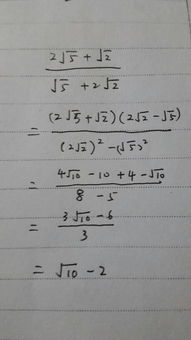 (2√5 + √2) / (√5 + 2√2)
= (2√5 + √2)(2√2 - √5) / ((2√2)² - (√5)²)
= (4√10 - 10 + 4 - √10) / (8 - 5)
= (3√10 - 6) / 3
= √10 - 2